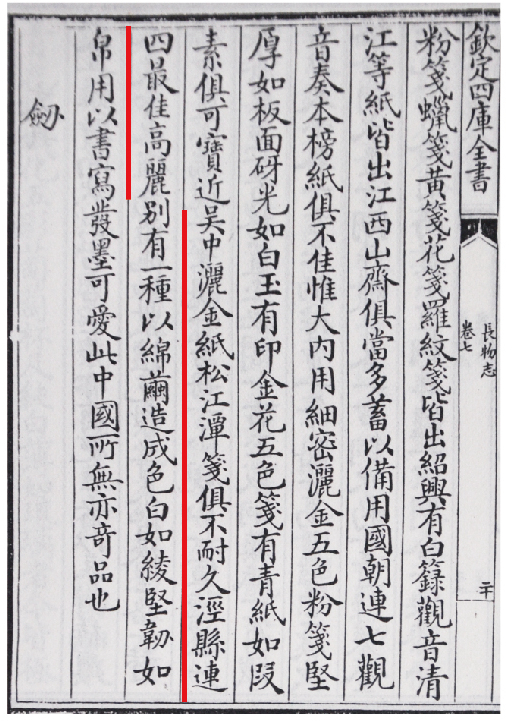 欽定四庫全書
長物志
卷七
二十
粉箋蠟箋黃箋花箋羅紋箋皆出紹興有白籙觀音清
江等紙皆出江西山齋俱當多蓄以備用國朝連七觀
音奏本榜紙俱不佳惟大內用細密灑金五色粉箋堅
厚如板面砑光如白玉有印金花五色箋有青紙如段
素俱可寶近吳中灑金紙松江潭箋俱不耐久涇縣連
四最佳高麗別有一種以綿繭造成色白如綾堅韌如
帛用以書寫發墨可愛此中國所無亦奇品也
劒